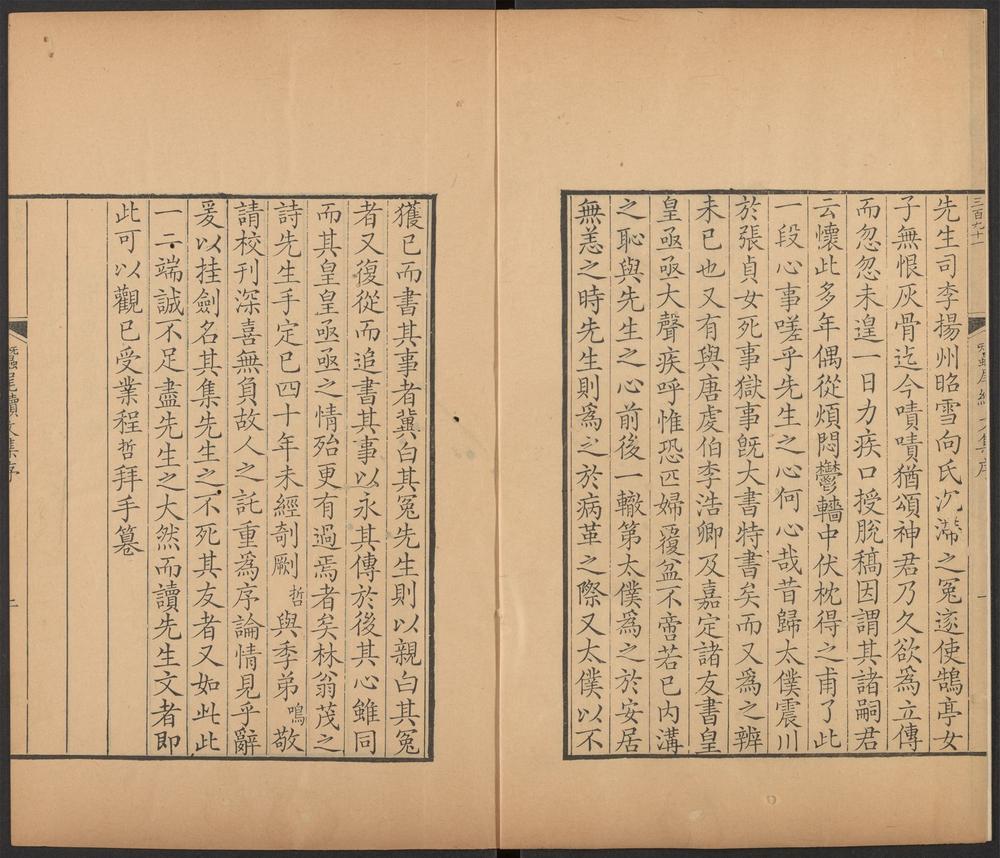 三百九十
先生司李揚州昭雪向氏沉滯之冤遂使鵠亭女
子無恨灰骨迄今嘖嘖猶頌神君乃久欲爲立傳
而忽忽未遑一日力疾口授脫稿因謂其諸嗣君
云懷此多年偶從煩悶鬱轖中伏枕得之甫了此
一段心事嗟乎先生之心何心哉昔歸太僕震川
於張貞女死事獄事旣大書特書矣而又爲之辨
未已也又有與唐虔伯李浩卿及嘉定諸友書皇
皇亟亟大聲疾呼惟恐匹婦覆盆不啻若已内溝
之恥與先生之心前後一轍第太僕爲之於安居
無恙之時先生則爲之於病革之際又太僕以不
獲已而書其事者冀白其冤先生則以親白其冤
者又復從而追書其事以永其傳於後其心雖同
而其皇皇亟亟之情殆更有過焉者矣林翁茂之
詩先生手定已四十年未經剞劂哲與季弟鳴敬
請校刊深喜無負故人之託重爲序論情見乎辭
爰以挂劍名其集先生之不死其友者又如此此
一二端誠不足盡先生之大然而讀先生文者即
此可以觀已受業程哲拜手篹
蠶尾續文集序
二